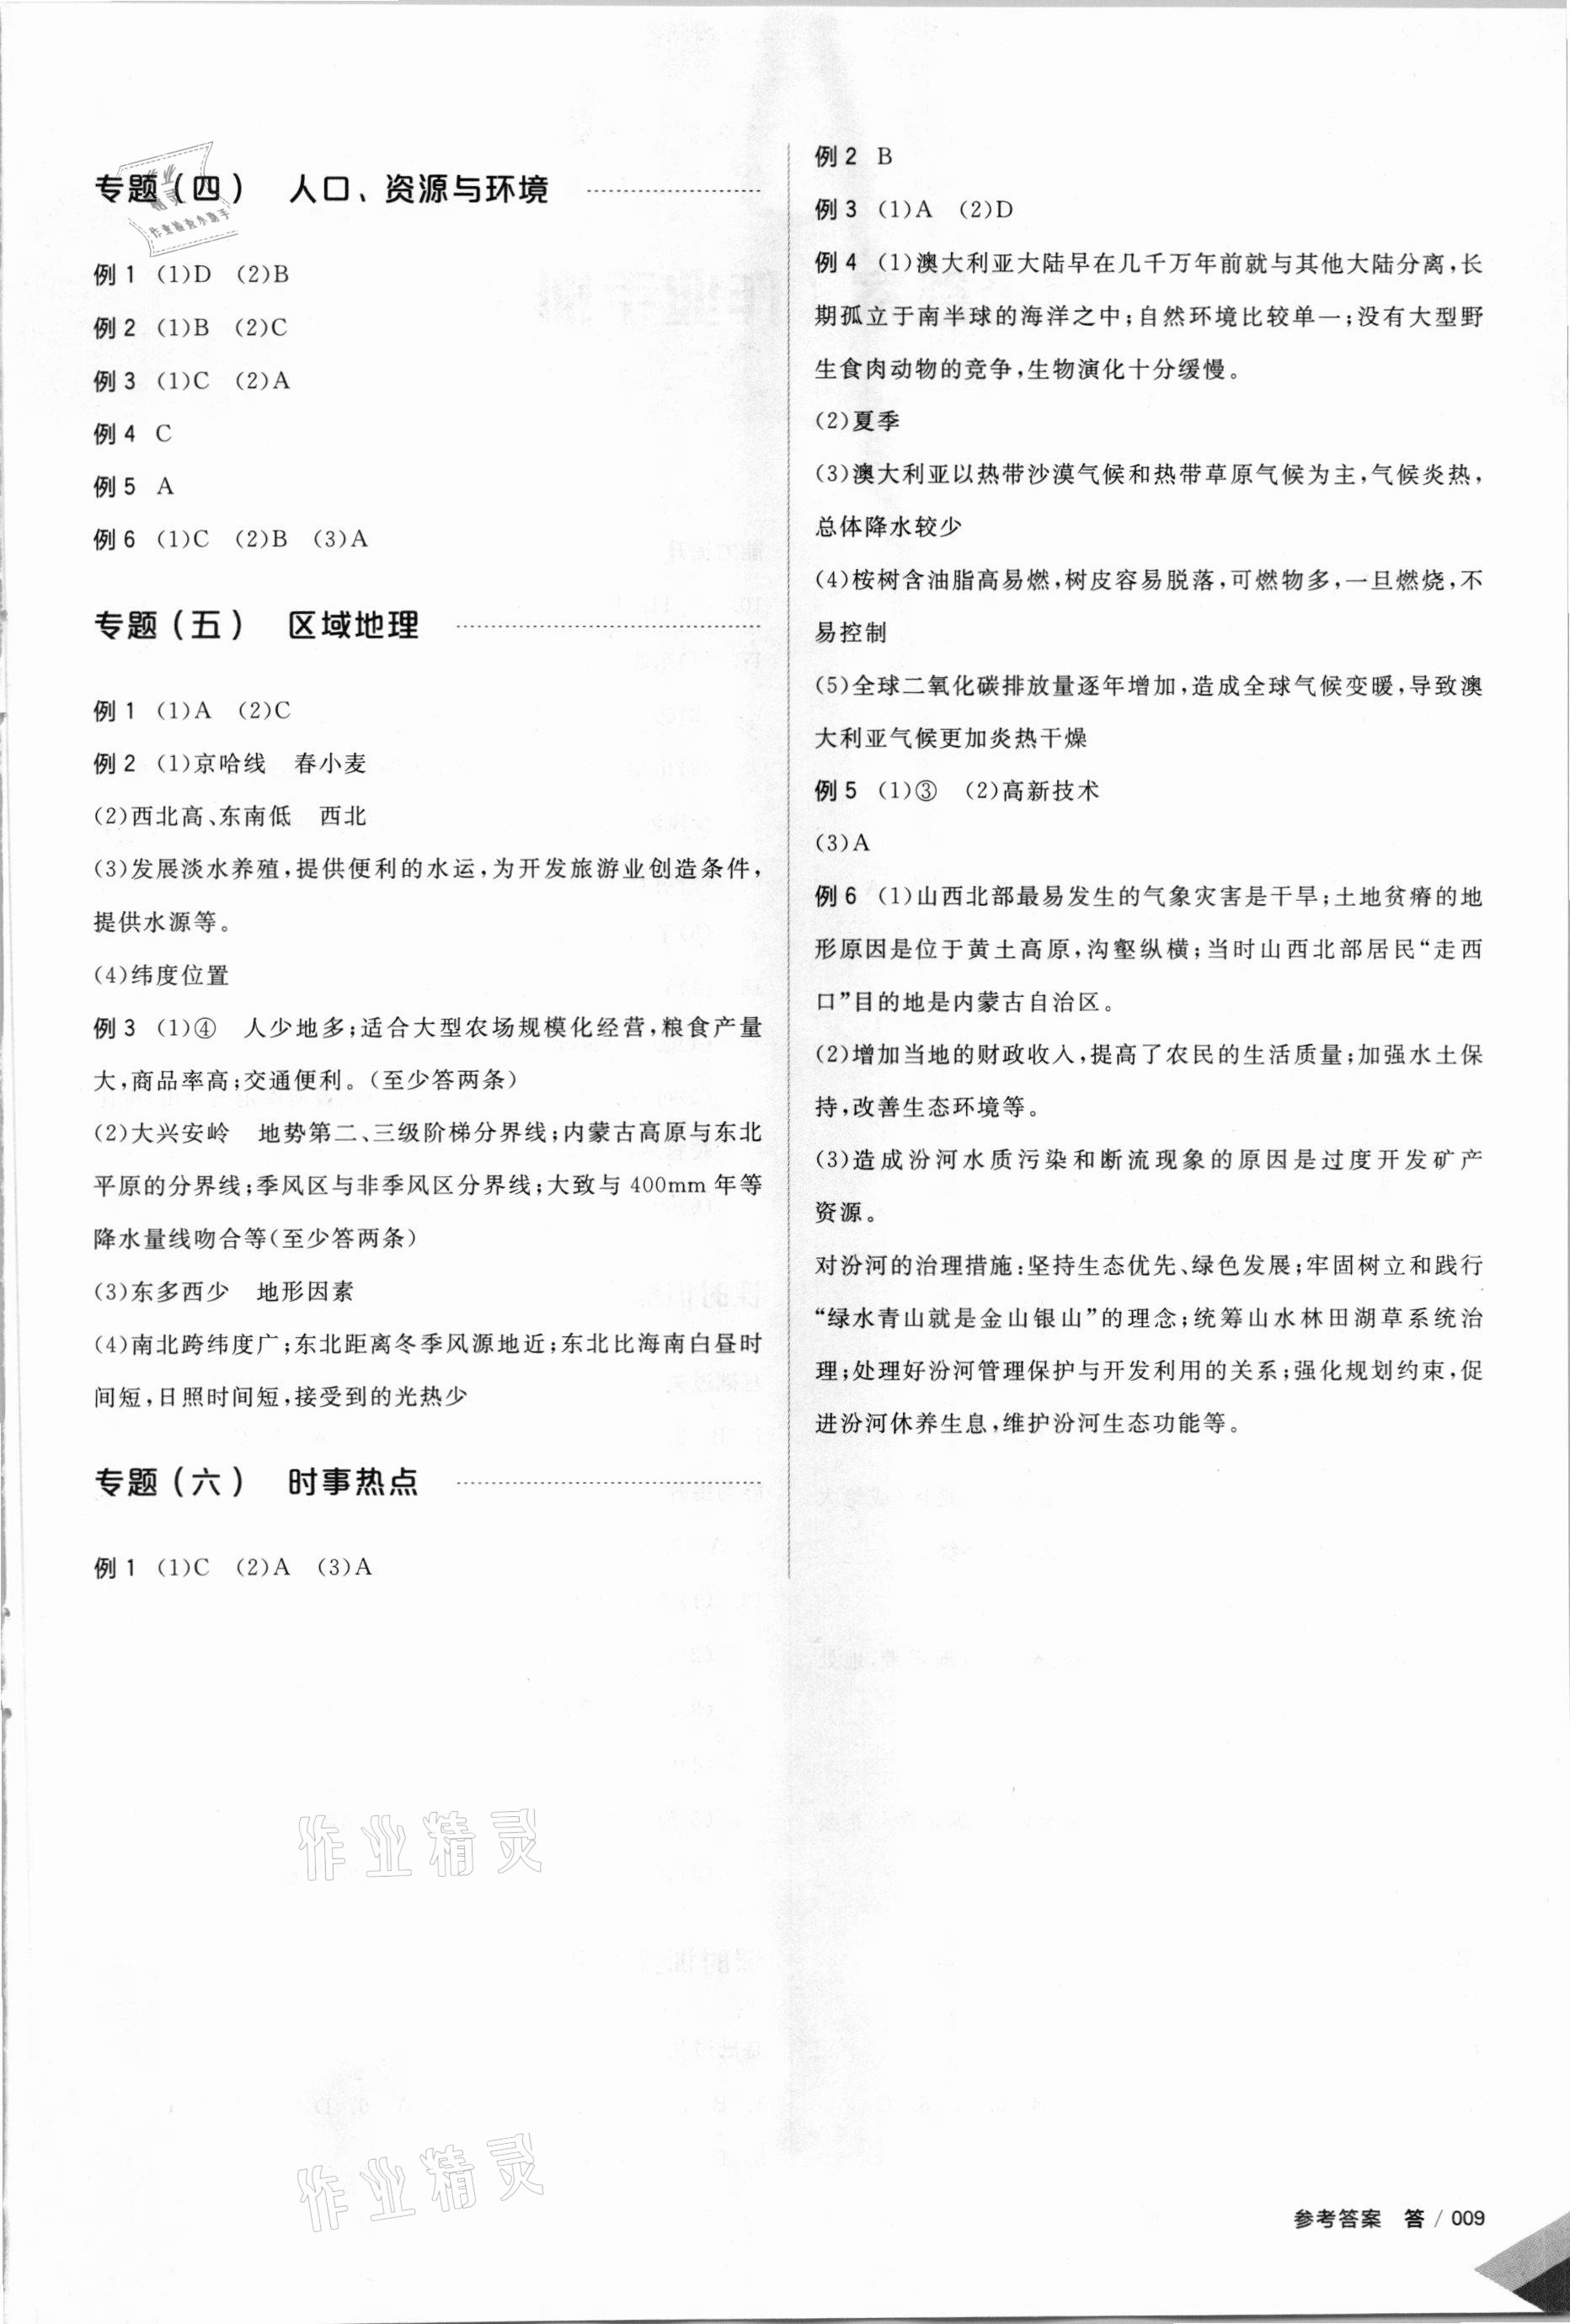 专题(四) 人口、资源与环境
例1 (1)D (2)B
例2 (1)B (2)C
例3 (1)C (2)A
例4 C
例5 A
例6 (1)C (2)B (3)A
专题(五) 区域地理
例1 (1)A (2)C
例2 (1)京哈线 春小麦
(2)西北高、东南低 西北
(3)发展淡水养殖,提供便利的水运,为开发旅游业创造条件,
提供水源等。
(4)纬度位置
例3 (1)④ 人少地多;适合大型农场规模化经营,粮食产量
大,商品率高;交通便利。(至少答两条)
(2)大兴安岭 地势第二、三级阶梯分界线;内蒙古高原与东北
平原的分界线;季风区与非季风区分界线;大致与400mm年等
降水量线吻合等(至少答两条)
(3)东多西少 地形因素
(4)南北跨纬度广;东北距离冬季风源地近;东北比海南白昼时
间短,日照时间短,接受到的光热少
专题(六) 时事热点
例1 (1)C (2)A (3)A
例2 B
例3 (1)A (2)D
例4 (1)澳大利亚大陆早在几千万年前就与其他大陆分离,长
期孤立于南半球的海洋之中;自然环境比较单一;没有大型野
生食肉动物的竞争,生物演化十分缓慢。
(2)夏季
(3)澳大利亚以热带沙漠气候和热带草原气候为主,气候炎热,
总体降水较少
(4)桉树含油脂高易燃,树皮容易脱落,可燃物多,一旦燃烧,不
易控制
(5)全球二氧化碳排放量逐年增加,造成全球气候变暖,导致澳
大利亚气候更加炎热干燥
例5 (1)③ (2)高新技术
(3)A
例6 (1)山西北部最易发生的气象灾害是干旱;土地贫瘠的地
形原因是位于黄土高原,沟壑纵横;当时山西北部居民“走西
口”目的地是内蒙古自治区。
(2)增加当地的财政收入,提高了农民的生活质量;加强水土保
持,改善生态环境等。
(3)造成汾河水质污染和断流现象的原因是过度开发矿产
资源。
对汾河的治理措施:坚持生态优先、绿色发展;牢固树立和践行
“绿水青山就是金山银山”的理念;统筹山水林田湖草系统治
理;处理好汾河管理保护与开发利用的关系;强化规划约束,促
进汾河休养生息,维护汾河生态功能等。
作业精灵
作业精灵
参考答案 答 / 009